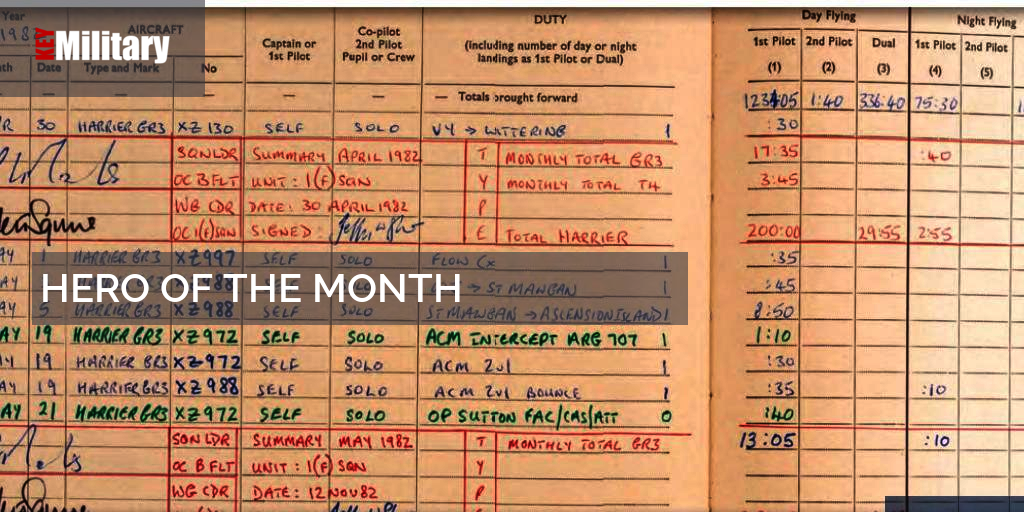 KEY Military
HERO OF THE MONTH
Year AIRCRAFT DUTY Day Flying Night Flying
198
Captain or 1st Pilot
Co-pilot 2nd Pilot Pupil or Crew
(including number of day or night landings as 1st Pilot or Dual)
1st Pilot 2nd Pilot Dual 1st Pilot 2nd Pilot
Date Type and Mark No (1) (2) (3) (4) (5)
— — — — — — Totals brought forward 123405 1:40 336:40 75:30
30 HARRIER GR3 XZ130 SELF SOLO VY → WITTERING 1 :30
SQNLDR SUMMARY APRIL 1982 T MONTHLY TOTAL GR3 17:35 :40
OC B FLT UNIT: 1(F) SQN Y MONTHLY TOTAL T4 3:45
WG CDR DATE: 30 APRIL 1982 P
OC 1(F) SQN SIGNED: E TOTAL HARRIER 200:00 29:55 2:55
AY 1 HARRIER GR3 XZ997 SELF SOLO FLOW Cx 1 :35
AY → ST MAWGAN 1 :45
AY 5 HARRIER GR3 XZ988 SELF SOLO ST MAWGAN → ASCENSION ISLAND 1 8:50
AY 19 HARRIER GR3 XZ972 SELF SOLO ACM INTERCEPT ARG 707 1 1:10
AY 19 HARRIER GR3 XZ972 SELF SOLO ACM 2v1 1 :30
AY 19 HARRIER GR3 XZ988 SELF SOLO ACM 2v1 BOUNCE 1 :35 :10
AY 21 HARRIER GR3 XZ972 SELF SOLO OP SUTTON FAC/CAS/ATT 0 :40
SQN LDR SUMMARY MAY 1982 T MONTHLY TOTAL GR3 13:05 :10
OC B FLT UNIT: 1(F) SQN Y
WG CDR DATE: 12 NOV 82 P